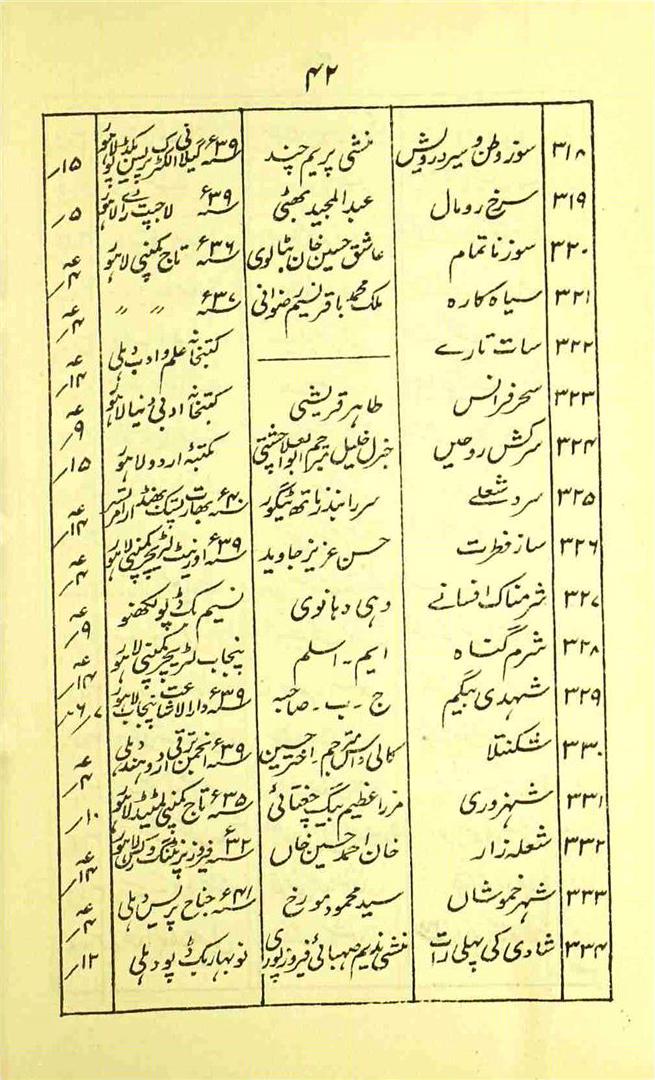 ۴۲
۳۱۸ سوز وطن و سیر درویش منشی پریم چند ۳۹ء گیلانی الکٹرک پریس بکڈپو لاہور ۱۵؍
۳۱۹ سرخ رومال عبدالمجید بھٹی ۳۹ء لاجپت رائے لاہور ۵؍
۳۲۰ سوز ناتمام عاشق حسین خان بٹالوی ۳۶ء تاج کمپنی لاہور عہ ۴؍
۳۲۱ سیاہ کارہ ملک محمد باقر نسیم رضوانی ۳۷ء 〃 〃 عہ ۴؍
۳۲۲ سات تارے ــــــ کتبخانہ علم و ادب دہلی عہ ۱۴؍
۳۲۳ سحر فرانس طاہر قریشی کتبخانہ ادبی دنیا لاہور عہ ۹؍
۳۲۴ سرکش روحیں جبرل خلیل مترجم ابوالعلا چشتی مکتبۂ اردو لاہور ۱۵؍
۳۲۵ سرد شعلے سر رابندر ناتھ ٹیگور ۴۰ء بھارت پستک بھنڈار امرتسر عہ ۱۴؍
۳۲۶ ساز فطرت حسن عزیز جاوید ۳۹ء اورینٹ لٹریچر کمپنی لاہور عہ ۴؍
۳۲۷ شرمناک افسانے وہی وہانوی نسیم بک ڈپو لکھنو عہ ۹؍
۳۲۸ شرم گناہ ایم۔ اسلم پنجاب لٹریچر کمپنی لاہور عہ ۱۴؍
۳۲۹ شہدی بیگم ج۔ ب۔ صاحبہ ۳۹ء دارالاشاعت پنجاب لاہور
۳۳۰ شکنتلا کالی داس مترجم۔ اختر حسین ۳۹ء انجمن ترقی اردو ہند دہلی عہ ۴؍
۳۳۱ شہزوری مرزا عظیم بیگ چغتائی ۳۵ء تاج کمپنی لمیٹڈ لاہور ۱۰؍
۳۳۲ شعلہ زار خان احمد حسین خاں ۳۲ء فیروز پرنٹنگ ورکس لاہور عہ ۱۴؍
۳۳۳ شہر خموشاں سید محمود مورخ ۴۱ء جناح پریس دہلی عہ ۴؍
۳۳۴ شادی کی پہلی رات منشی ندیم صہبائی فیروزپوری نو بہار بک ڈپو دہلی ۱۲؍